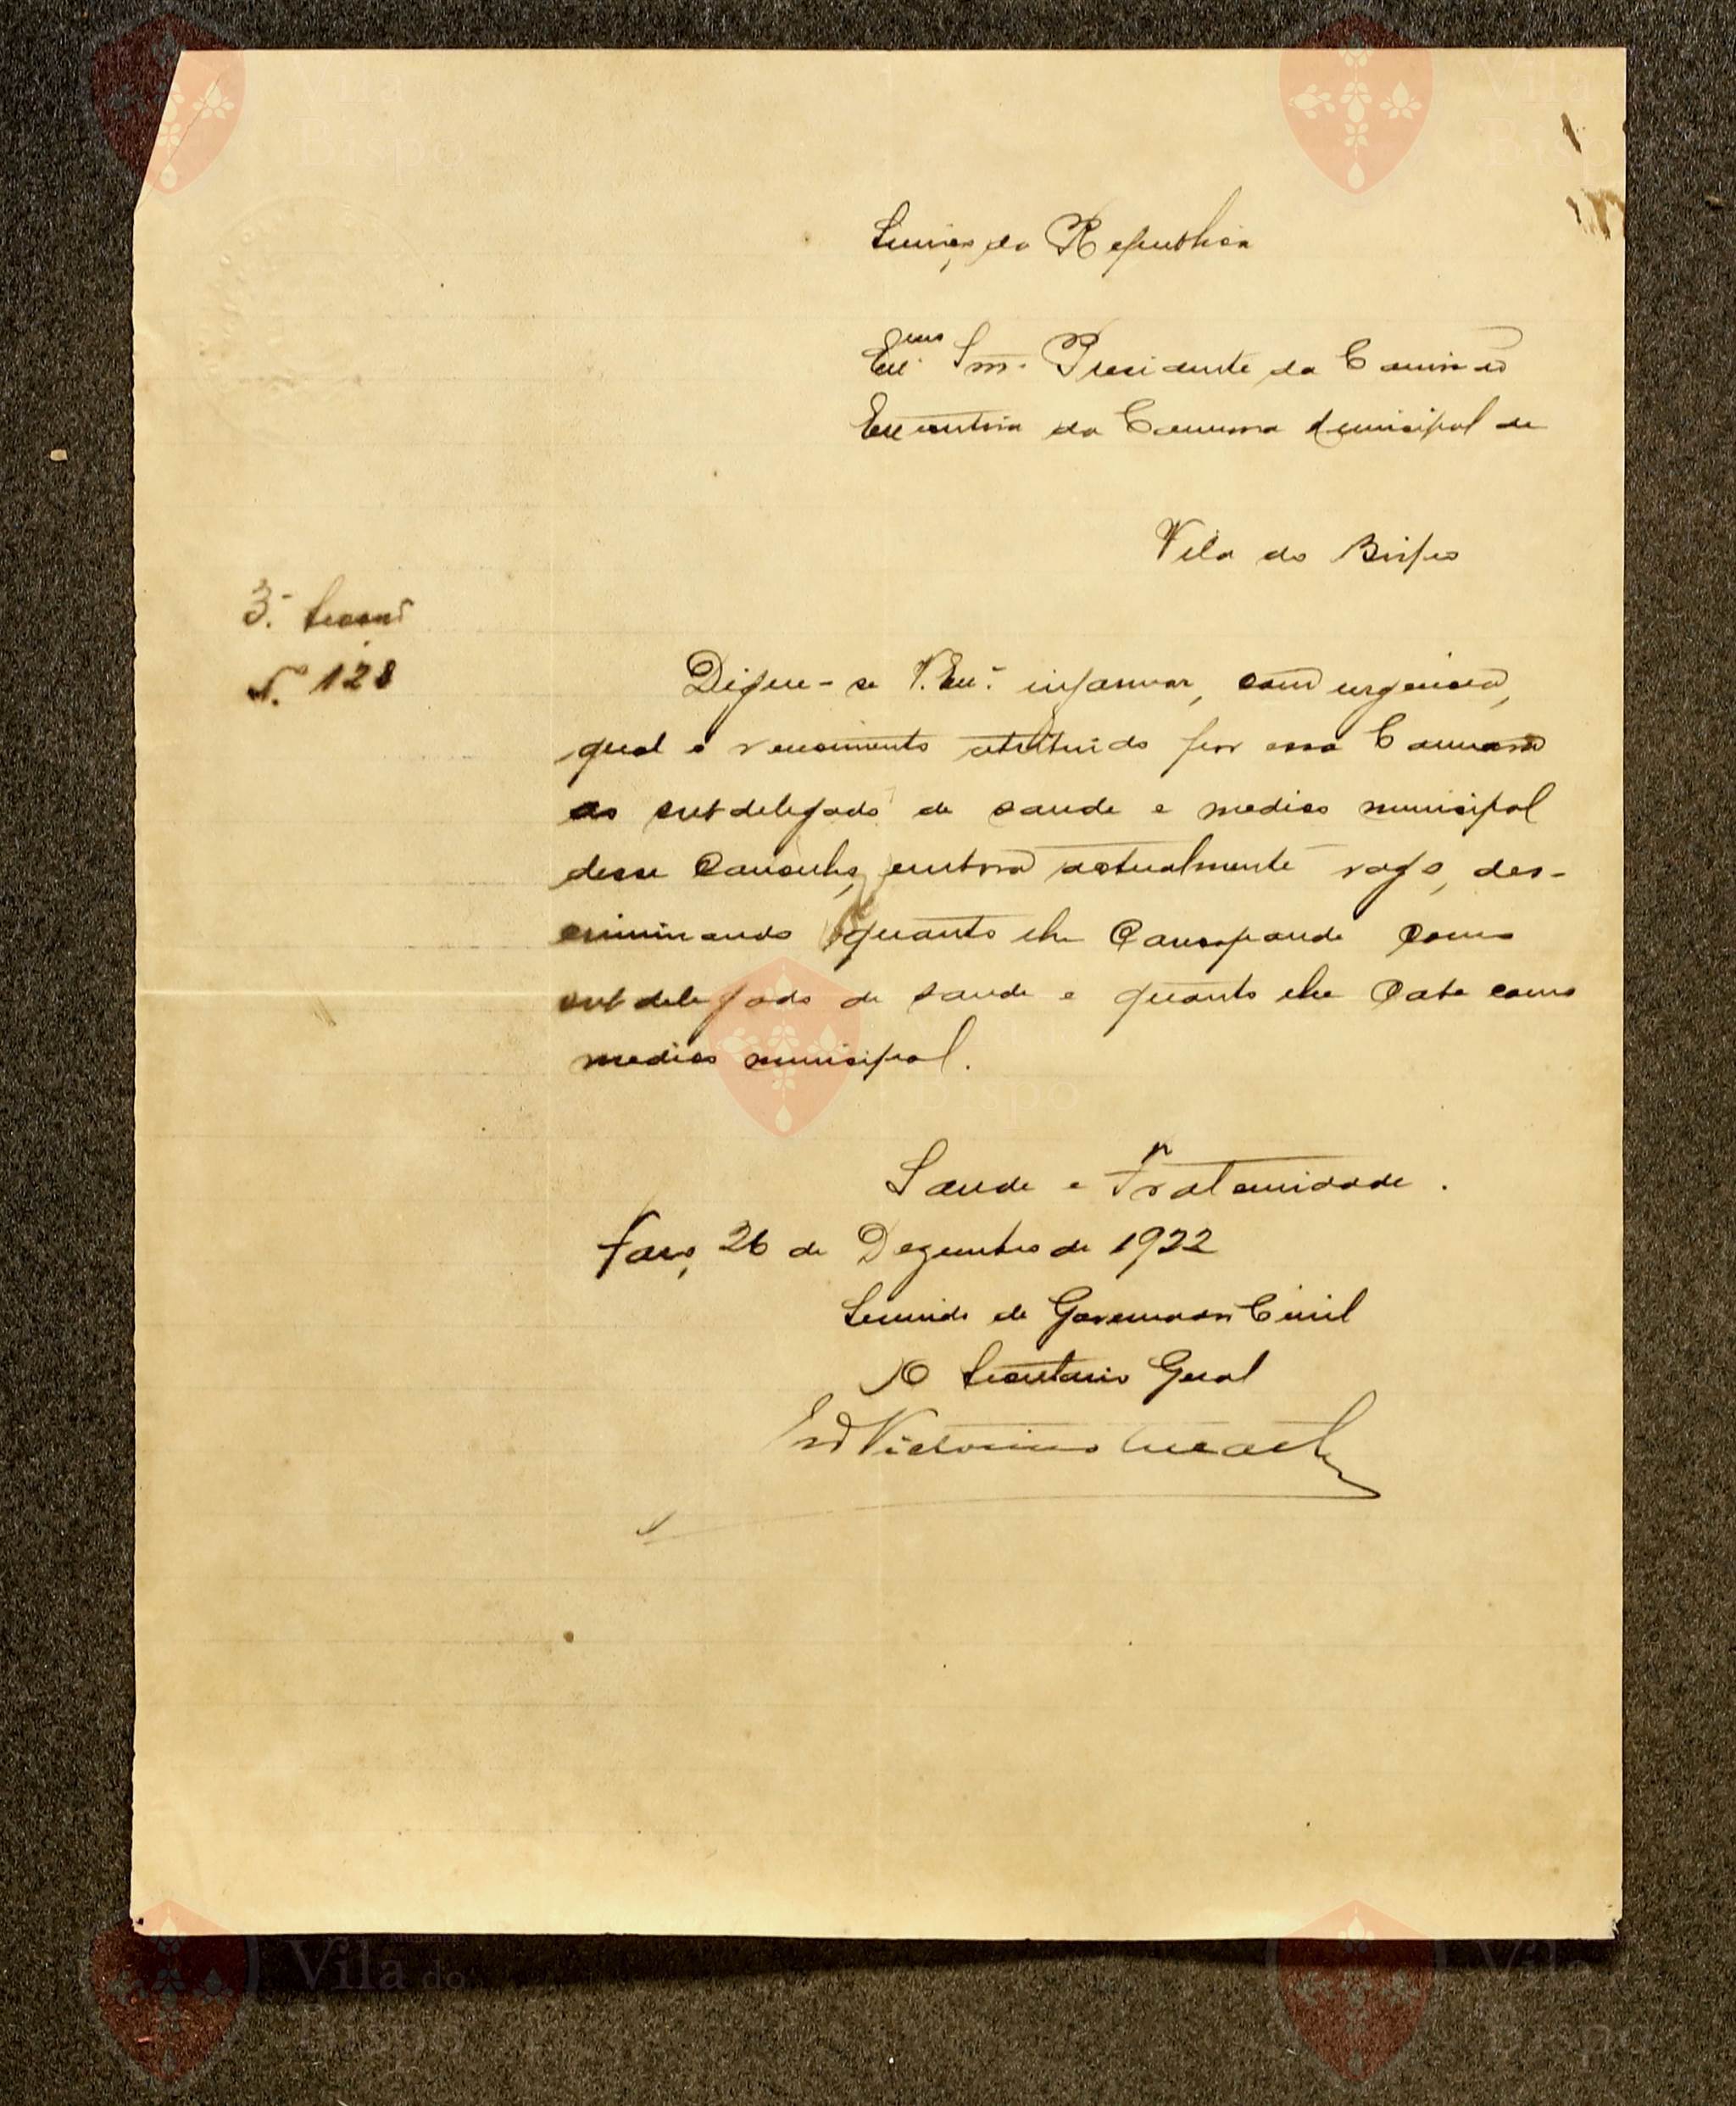 Serviço da Republica
Exᵐᵒ Snr. Presidente da Comissão
Executiva da Camara Municipal de
Vila do Bispo
3ª Secção
N.º 128
Digne-se V. Exª informar, com urgencia,
qual o vencimento atribuido por essa Camara
ao subdelegado de saude e medico municipal
desse Concelho, embora actualmente vago, des-
criminando quanto lhe corresponde como
subdelegado de saude e quanto lhe cabe como
medico municipal.
Saude e Fraternidade.
Faro, 26 de Dezembro de 1922
Servindo de Governador Civil
O Secretario Geral
Victorino
Vila do
Bispo